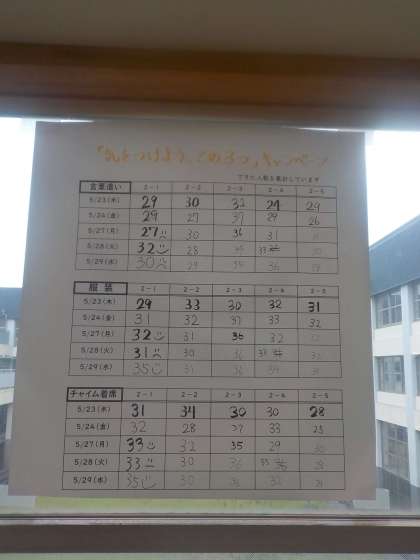 「気をつけよう、この3つ」キャンペーン
できた人数を集計しています
言葉遣い 2-1 2-2 2-3 2-4 2-5
5/23(木) 29 30 32 24 29
5/24(金) 29 27 37 29 26
5/27(月) 27 30 36 31
5/28(火) 32 28
5/29(水) 30 29 36
服装 2-1 2-2 2-3 2-4 2-5
5/23(木) 29 33 30 32 31
5/24(金) 31 32 37 33 32
5/27(月) 32 31 36 32
5/28(火) 31 30 36
5/29(水) 35 31 36
チャイム着席 2-1 2-2 2-3 2-4 2-5
5/23(木) 31 34 30 30 28
5/24(金) 32 28 37 33 25
5/27(月) 33 32 35 29
5/28(火) 33 30 36
5/29(水) 35 30 36 32